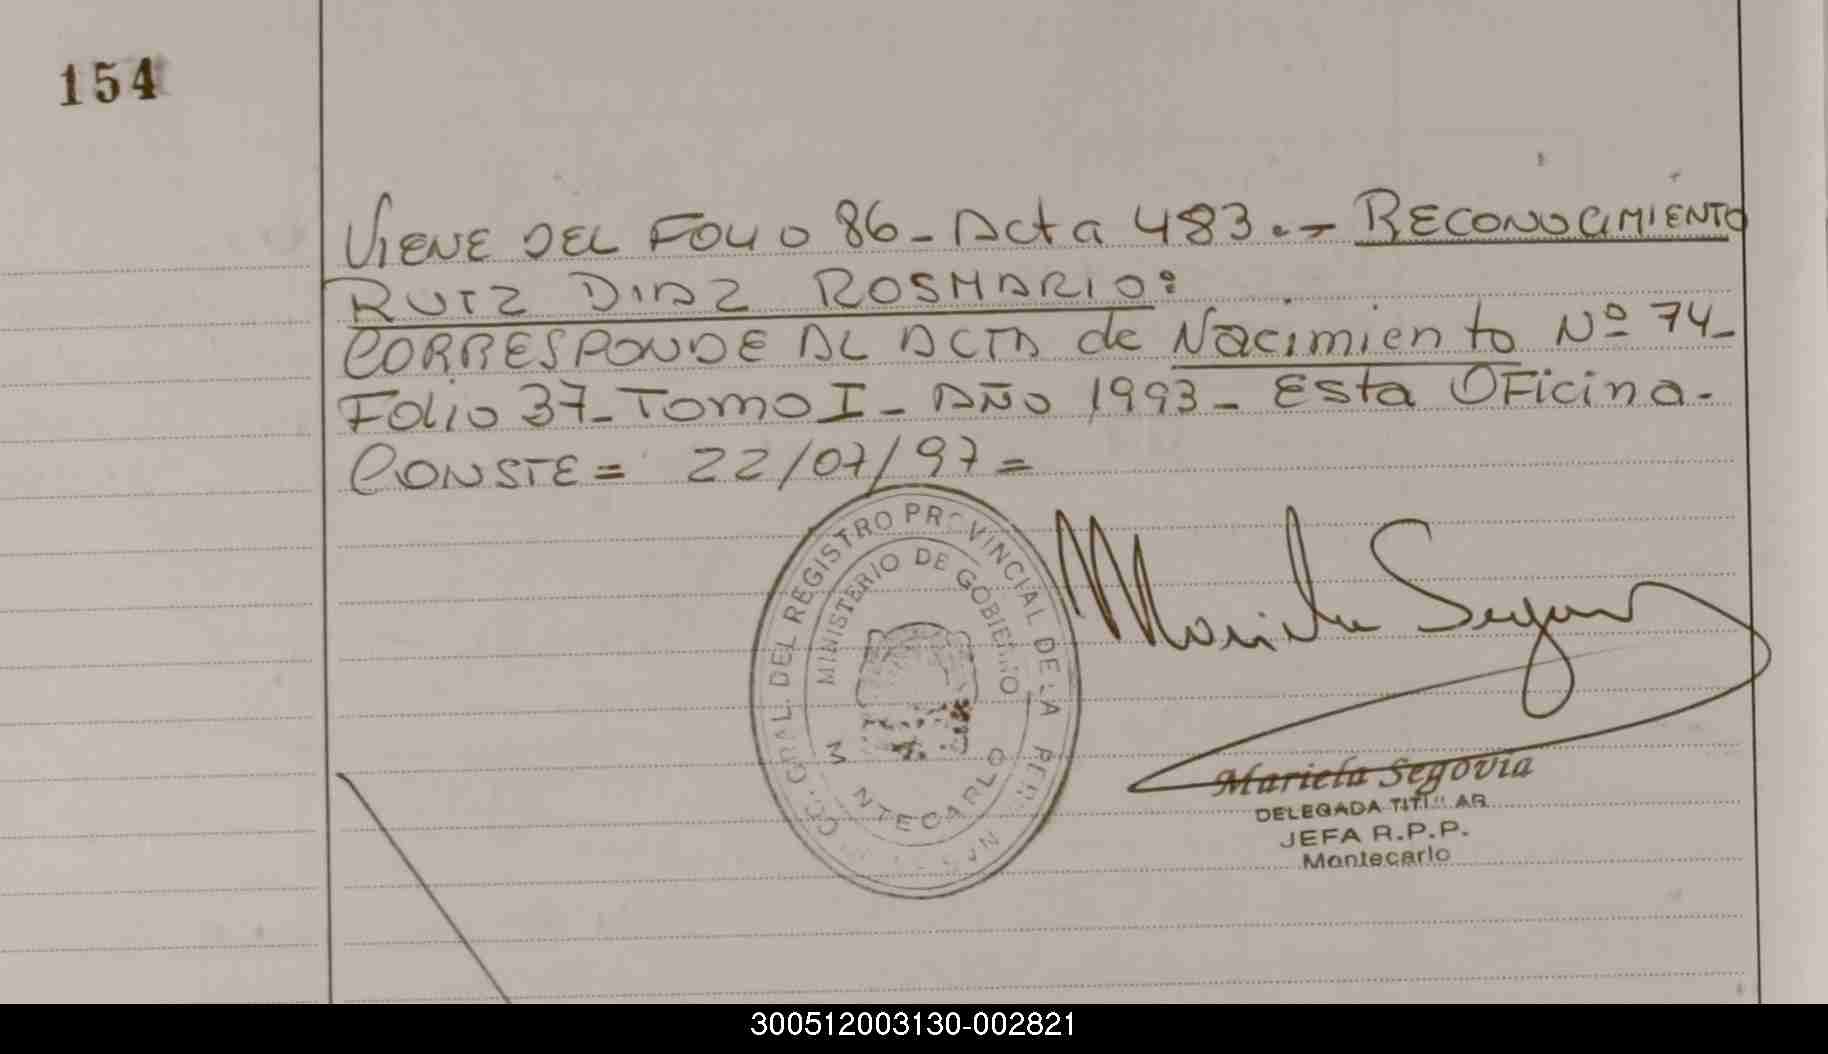 154
VIENE DEL FOLIO 86 - Acta 483.- RECONOCIMIENTO
RUIZ DIAZ ROSMARIO:
CORRESPONDE AL ACTA de Nacimiento Nº 74-
Folio 37- Tomo I - AÑO 1993 - Esta OFicina.
CONSTE = 22/07/97 =
GRAL. DEL REGISTRO PROVINCIAL DE
MINISTERIO DE GOBIERNO
M NTECARLO
Mariela Segovia
Mariela Segovia
DELEGADA TIT AR
JEFA R.P.P.
Montecarlo
300512003130-002821